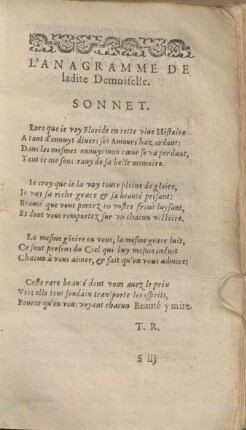 L'ANAGRAMME DE
ladite Demoiselle.
SONNET.
Lors que ie voy Floride en cette viue Histoire
A tant d'ennuys diuers ses Amours hazardant;
Dans les mesmes ennuys mon cœur se va perdant,
Tant ie me sens rauy de sa belle memoire.
Ie croy que ie la voy toute pleine de gloire,
Ie vay sa riche grace & sa beauté prisant:
Beauté que vous portez en vostre front luysant,
Et dont vous remportez sur vn chacun victoire.
La mesme gloire en vous, la mesme grace luit,
Ce sont presens du Ciel qui luy mesme induit
Chacun à vous aimer, & fait qu'on vous admire:
Ceste rare beauté dont vous auez le prix
Vers elle tout soudain transporte les esprits,
Pource qu'en vous voyant chacun Beauté y mire.
T. R.
§ iij